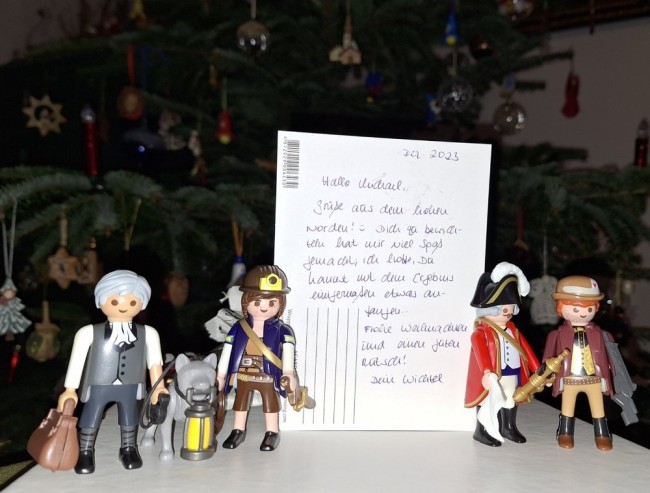 Dez 2023
Hallo Michael,
Grüße aus dem hohen
Norden! Dich zu bewich-
teln hat mir viel Spaß
gemacht, ich hoffe, Du
kannst mit dem Ergebnis
einigermaßen etwas an-
fangen.
Frohe Weihnachten
und einen guten
Rutsch!
Dein Wichtel